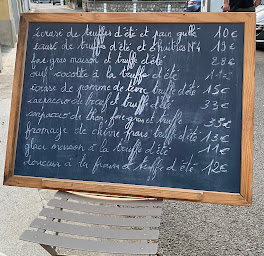 écrasé de truffes d'été et pain grillé 10€
œufs de truffes d'été et huitres N°4 13€
foie gras maison et truffe d'été 28€
œuf cocotte à la truffe d'été
écrasé de pomme de terre truffe d'été 15€
carpaccio de bœuf et truffe d'été 33€
carpaccio de thon, foie gras et truffe 35€
fromage de chèvre frais truffe d'été 13€
glace maison à la truffe d'été 11€
douceur à la fraise et truffe d'été 12€